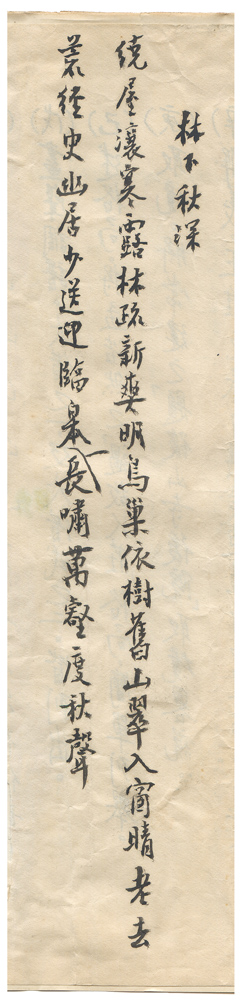 林下秋深
繞屋瀼寒露林疏新爽明鳥巢依樹舊山翠入窗晴老去
荒經史幽居少送迎臨皋一長嘯萬壑度秋聲